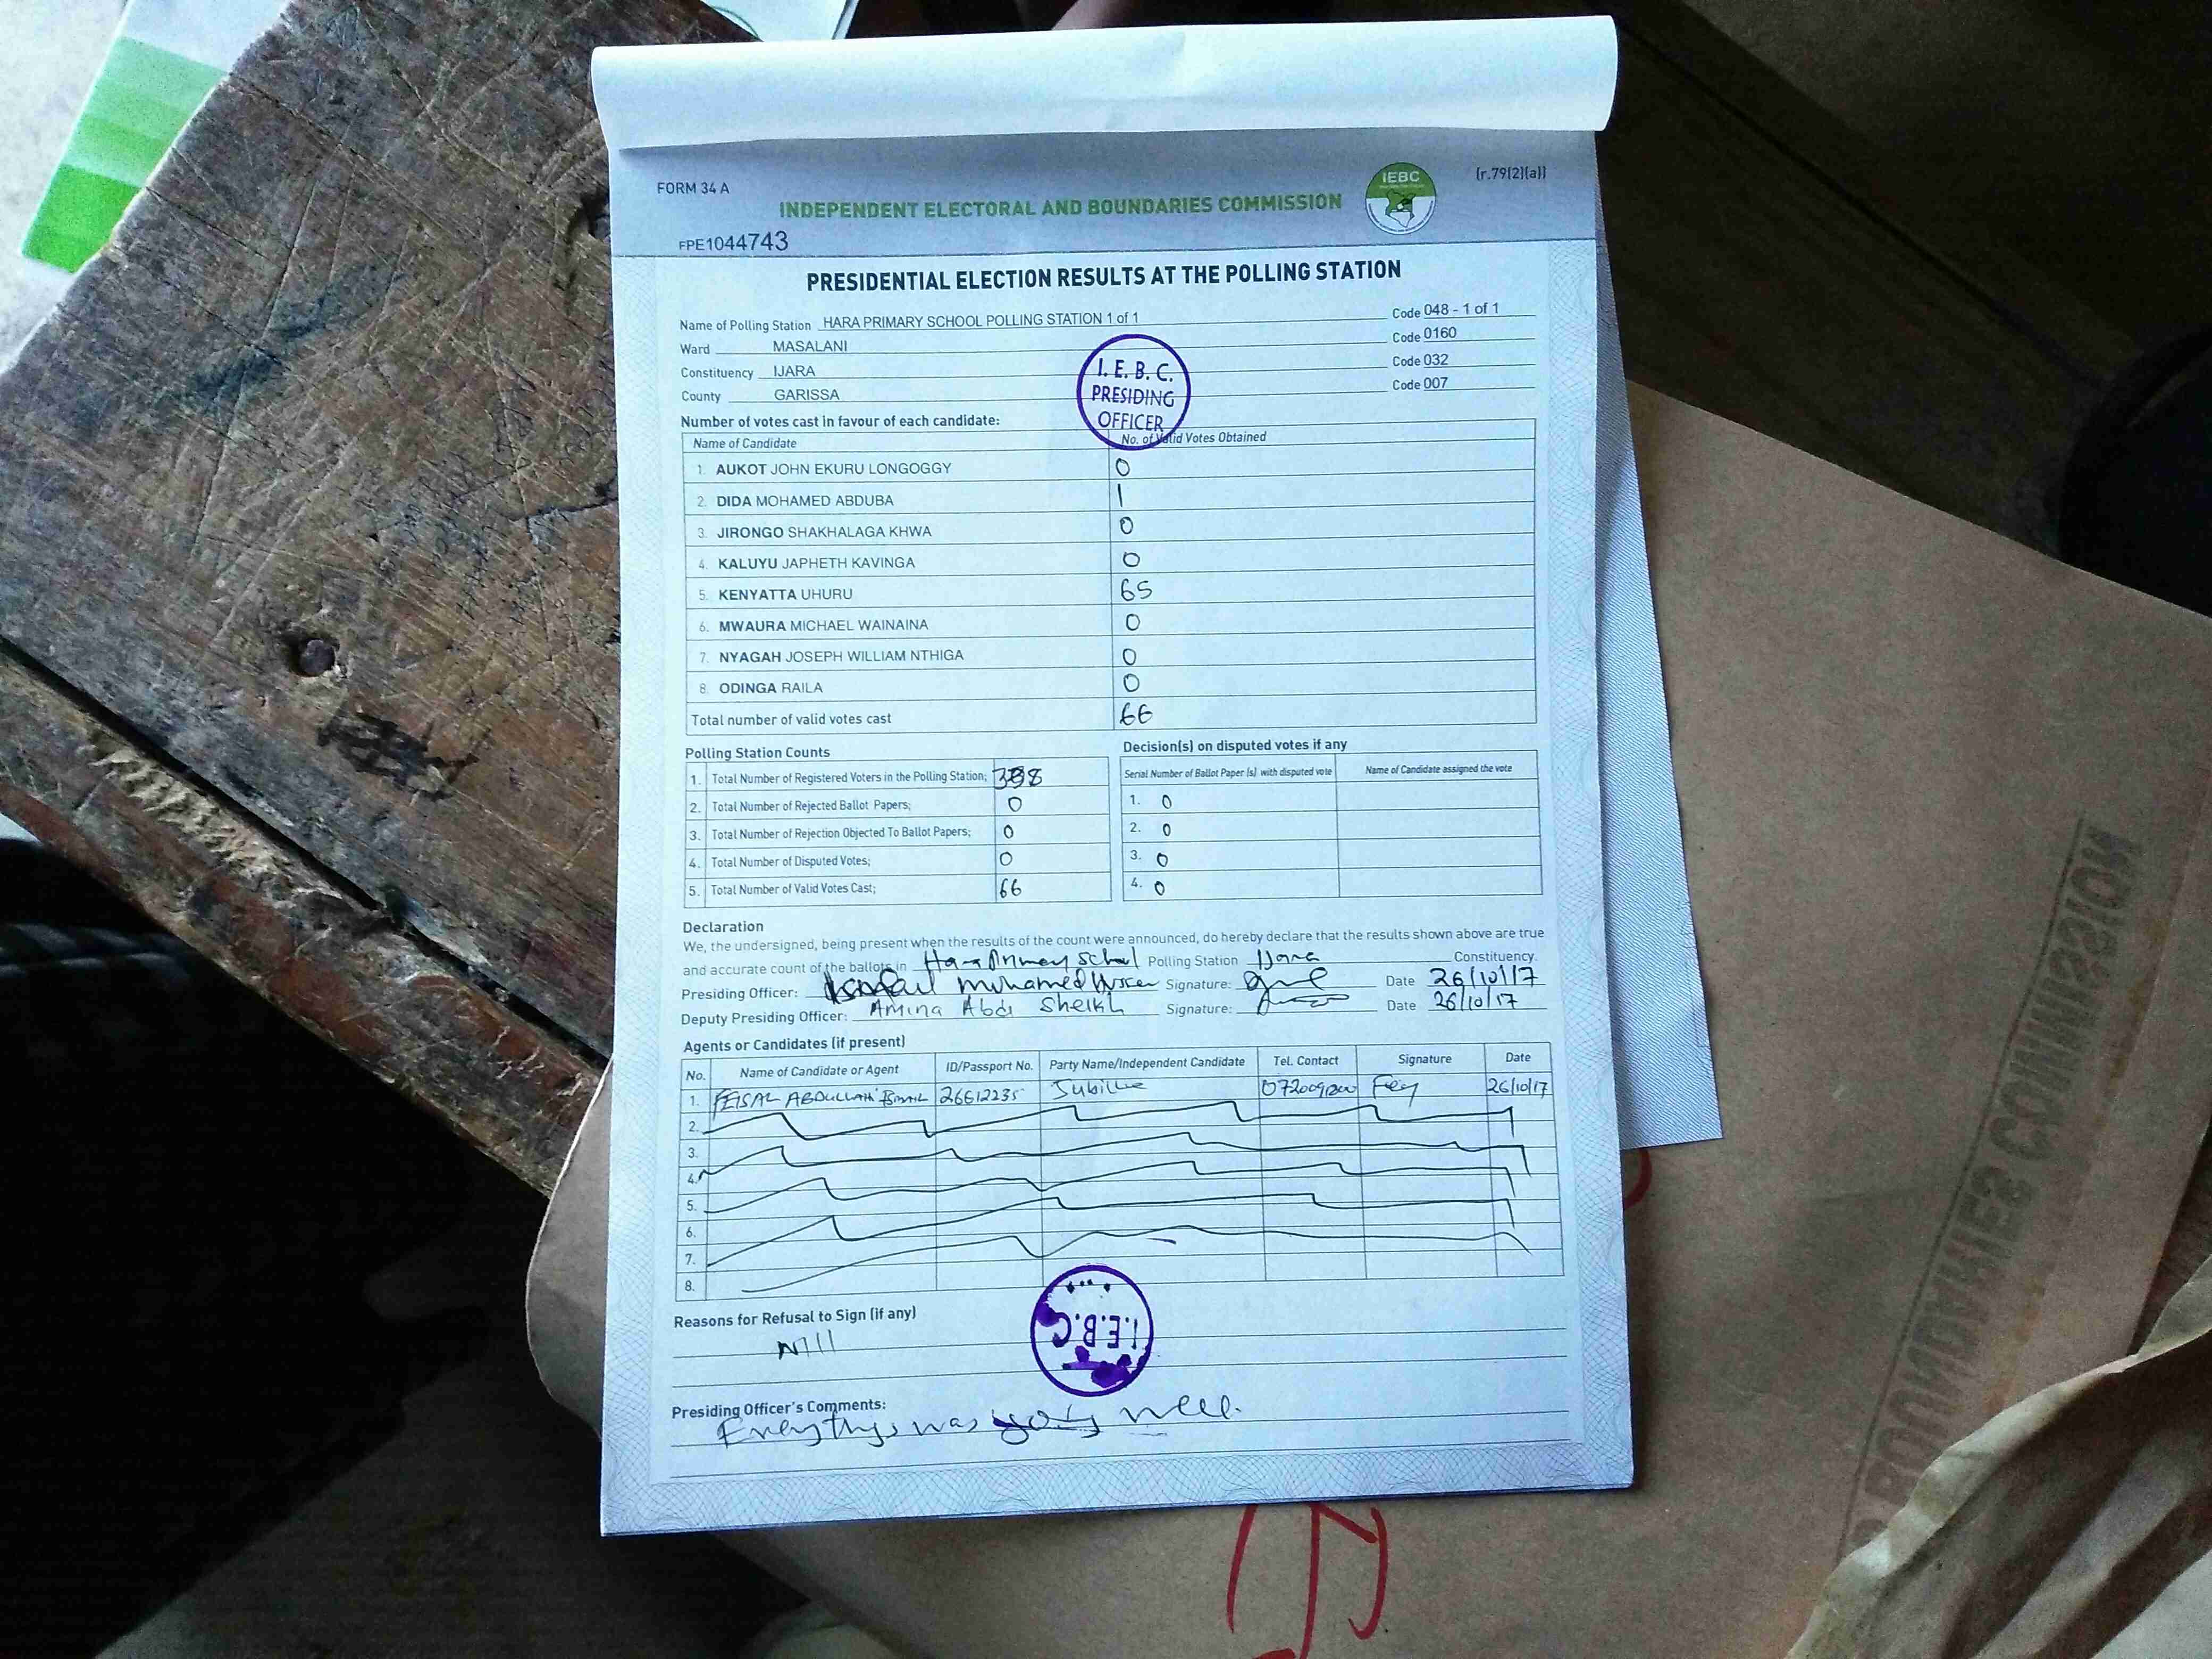 FORM 34 A
(r.79(2)(a))
IEBC
INDEPENDENT ELECTORAL AND BOUNDARIES COMMISSION
FPE1044743
PRESIDENTIAL ELECTION RESULTS AT THE POLLING STATION
Name of Polling Station HARA PRIMARY SCHOOL POLLING STATION 1 of 1 Code 048 - 1 of 1
Ward MASALANI Code 0160
Constituency IJARA Code 032
County GARISSA Code 007
I.E.B.C.
PRESIDING
OFFICER
Number of votes cast in favour of each candidate:
Name of Candidate No. of Valid Votes Obtained
1. AUKOT JOHN EKURU LONGOGGY 0
2. DIDA MOHAMED ABDUBA 1
3. JIRONGO SHAKHALAGA KHWA 0
4. KALUYU JAPHETH KAVINGA 0
5. KENYATTA UHURU 65
6. MWAURA MICHAEL WAINAINA 0
7. NYAGAH JOSEPH WILLIAM NTHIGA 0
8. ODINGA RAILA 0
Total number of valid votes cast 66
Polling Station Counts
1. Total Number of Registered Voters in the Polling Station;
2. Total Number of Rejected Ballot Papers; 0
3. Total Number of Rejection Objected To Ballot Papers; 0
4. Total Number of Disputed Votes; 0
5. Total Number of Valid Votes Cast; 66
Decision(s) on disputed votes if any
Serial Number of Ballot Paper (s) with disputed vote Name of Candidate assigned the vote
1. 0
2. 0
3. 0
4. 0
Declaration
We, the undersigned, being present when the results of the count were announced, do hereby declare that the results shown above are true
and accurate count of the ballots in Hara Primary School Polling Station Ijara Constituency.
Presiding Officer: Mohamed Signature: Date 26/10/17
Deputy Presiding Officer: Amina Abdi Sheikh Signature: Date 26/10/17
Agents or Candidates (if present)
No. Name of Candidate or Agent ID/Passport No. Party Name/Independent Candidate Tel. Contact Signature Date
1. FEISAL ABDULLAHI ISMAIL 26612235 Jubilee 26/10/17
2.
3.
4.
5.
6.
7.
8.
I.E.B.C
Reasons for Refusal to Sign (if any)
Nill
Presiding Officer's Comments:
was well.
BOUNDARIES COMMISSION